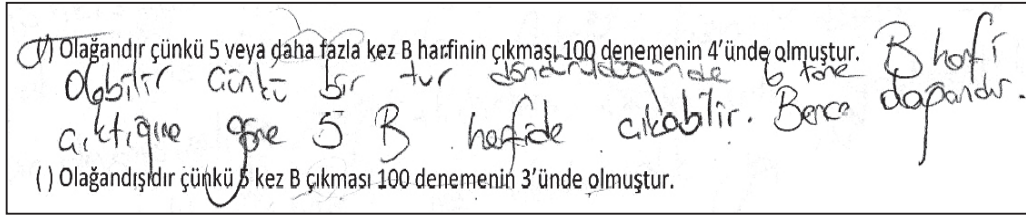 (√) Olağandır çünkü 5 veya daha fazla kez B harfinin çıkması 100 denemenin 4'ünde olmuştur.
Olabilir Çünkü bir tur döndürüldüğünde 6 tane B harfi
çıktığına göre 5 B harfide çıkabilir. Bence
( ) Olağandışıdır çünkü 5 kez B çıkması 100 denemenin 3'ünde olmuştur.